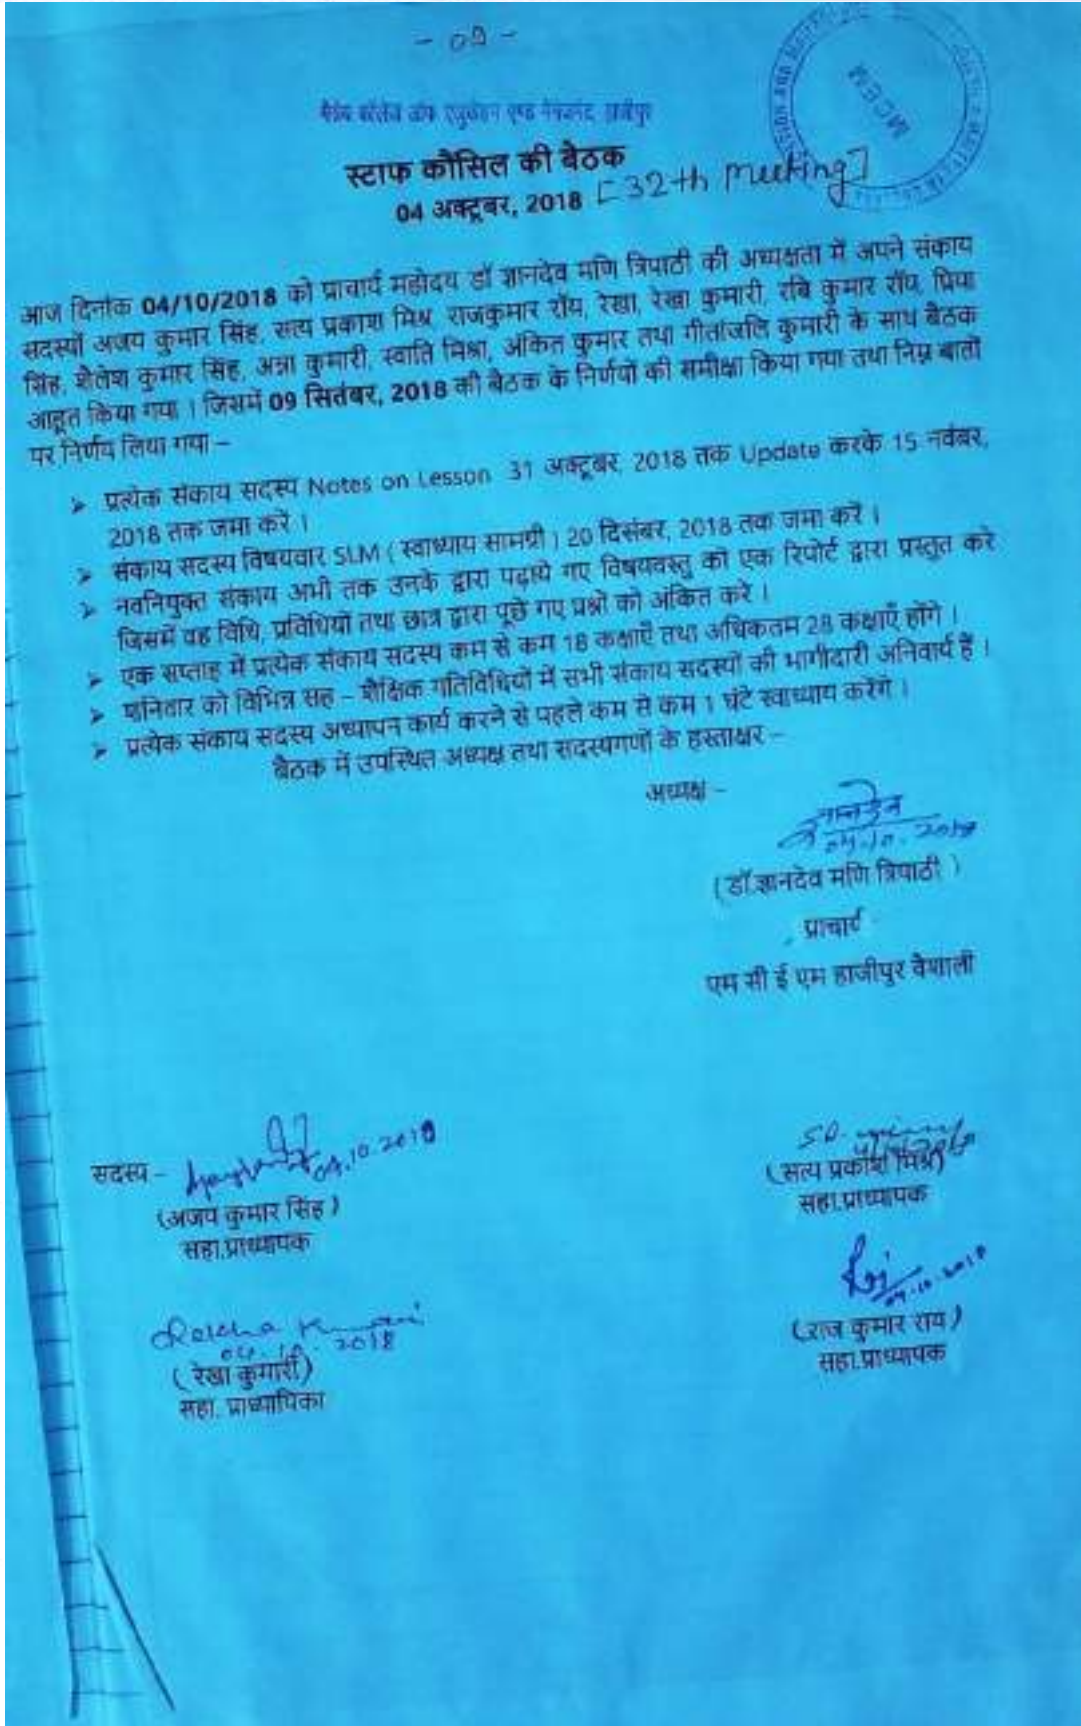 - 09 -
मैत्रेय कॉलेज ऑफ एजुकेशन एण्ड मैनेजमेंट, हाजीपुर
MCEM
स्टाफ कौंसिल की बैठक
04 अक्टूबर, 2018 [32th Meeting]
आज दिनांक 04/10/2018 को प्राचार्य महोदय डॉ ज्ञानदेव मणि त्रिपाठी की अध्यक्षता में अपने संकाय
सदस्यों अजय कुमार सिंह, सत्य प्रकाश मिश्र, राजकुमार रॉय, रेखा, रेखा कुमारी, रबि कुमार रॉय, प्रिया
सिंह, शैलेश कुमार सिंह, अन्ना कुमारी, स्वाति मिश्रा, अंकित कुमार तथा गीतांजलि कुमारी के साथ बैठक
आहूत किया गया । जिसमें 09 सितंबर, 2018 की बैठक के निर्णयों की समीक्षा किया गया तथा निम्न बातों
पर निर्णय लिया गया –
➢ प्रत्येक संकाय सदस्य Notes on Lesson 31 अक्टूबर, 2018 तक Update करके 15 नवंबर,
2018 तक जमा करें ।
➢ संकाय सदस्य विषयवार SLM ( स्वाध्याय सामग्री ) 20 दिसंबर, 2018 तक जमा करें ।
➢ नवनियुक्त संकाय अभी तक उनके द्वारा पढ़ाये गए विषयवस्तु को एक रिपोर्ट द्वारा प्रस्तुत करे
जिसमें वह विधि, प्रविधियों तथा छात्र द्वारा पूछे गए प्रश्नों को अंकित करें ।
➢ एक सप्ताह में प्रत्येक संकाय सदस्य कम से कम 18 कक्षाएँ तथा अधिकतम 28 कक्षाएँ होंगे ।
➢ शनिवार को विभिन्न सह – शैक्षिक गतिविधियों में सभी संकाय सदस्यों की भागीदारी अनिवार्य है ।
➢ प्रत्येक संकाय सदस्य अध्यापन कार्य करने से पहले कम से कम 1 घंटे स्वाध्याय करेंगे ।
बैठक में उपस्थित अध्यक्ष तथा सदस्यगणों के हस्ताक्षर –
अध्यक्ष –
ज्ञानदेव
04.10.2018
(डॉ.ज्ञानदेव मणि त्रिपाठी )
प्राचार्य
एम सी ई एम हाजीपुर वैशाली
सदस्य – 04.10.2018
(अजय कुमार सिंह )
सहा.प्राध्यापक
(सत्य प्रकाश मिश्र)
सहा.प्राध्यापक
Rekha Kumari
04.10.2018
( रेखा कुमारी)
सहा. प्राध्यापिका
04.10.2018
(राज कुमार राय )
सहा.प्राध्यापक